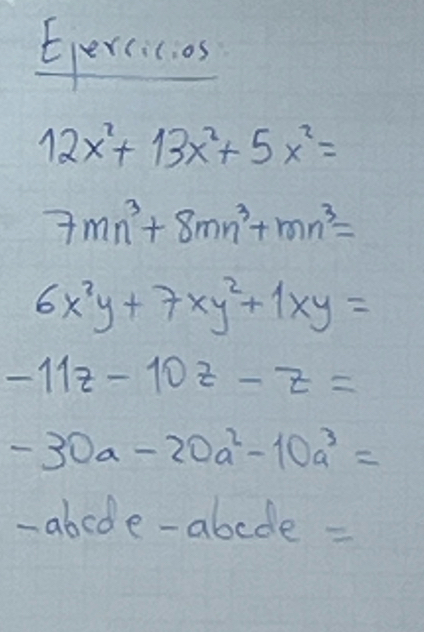 Ejercicios.
12x²+ 13x²+ 5x²=
7mn³+ 8mn³+mn³=
6x²y + 7xy²+ 1xy =
-11z - 10z - z =
-30a - 20a² - 10a³ =
-abcde - abcde =